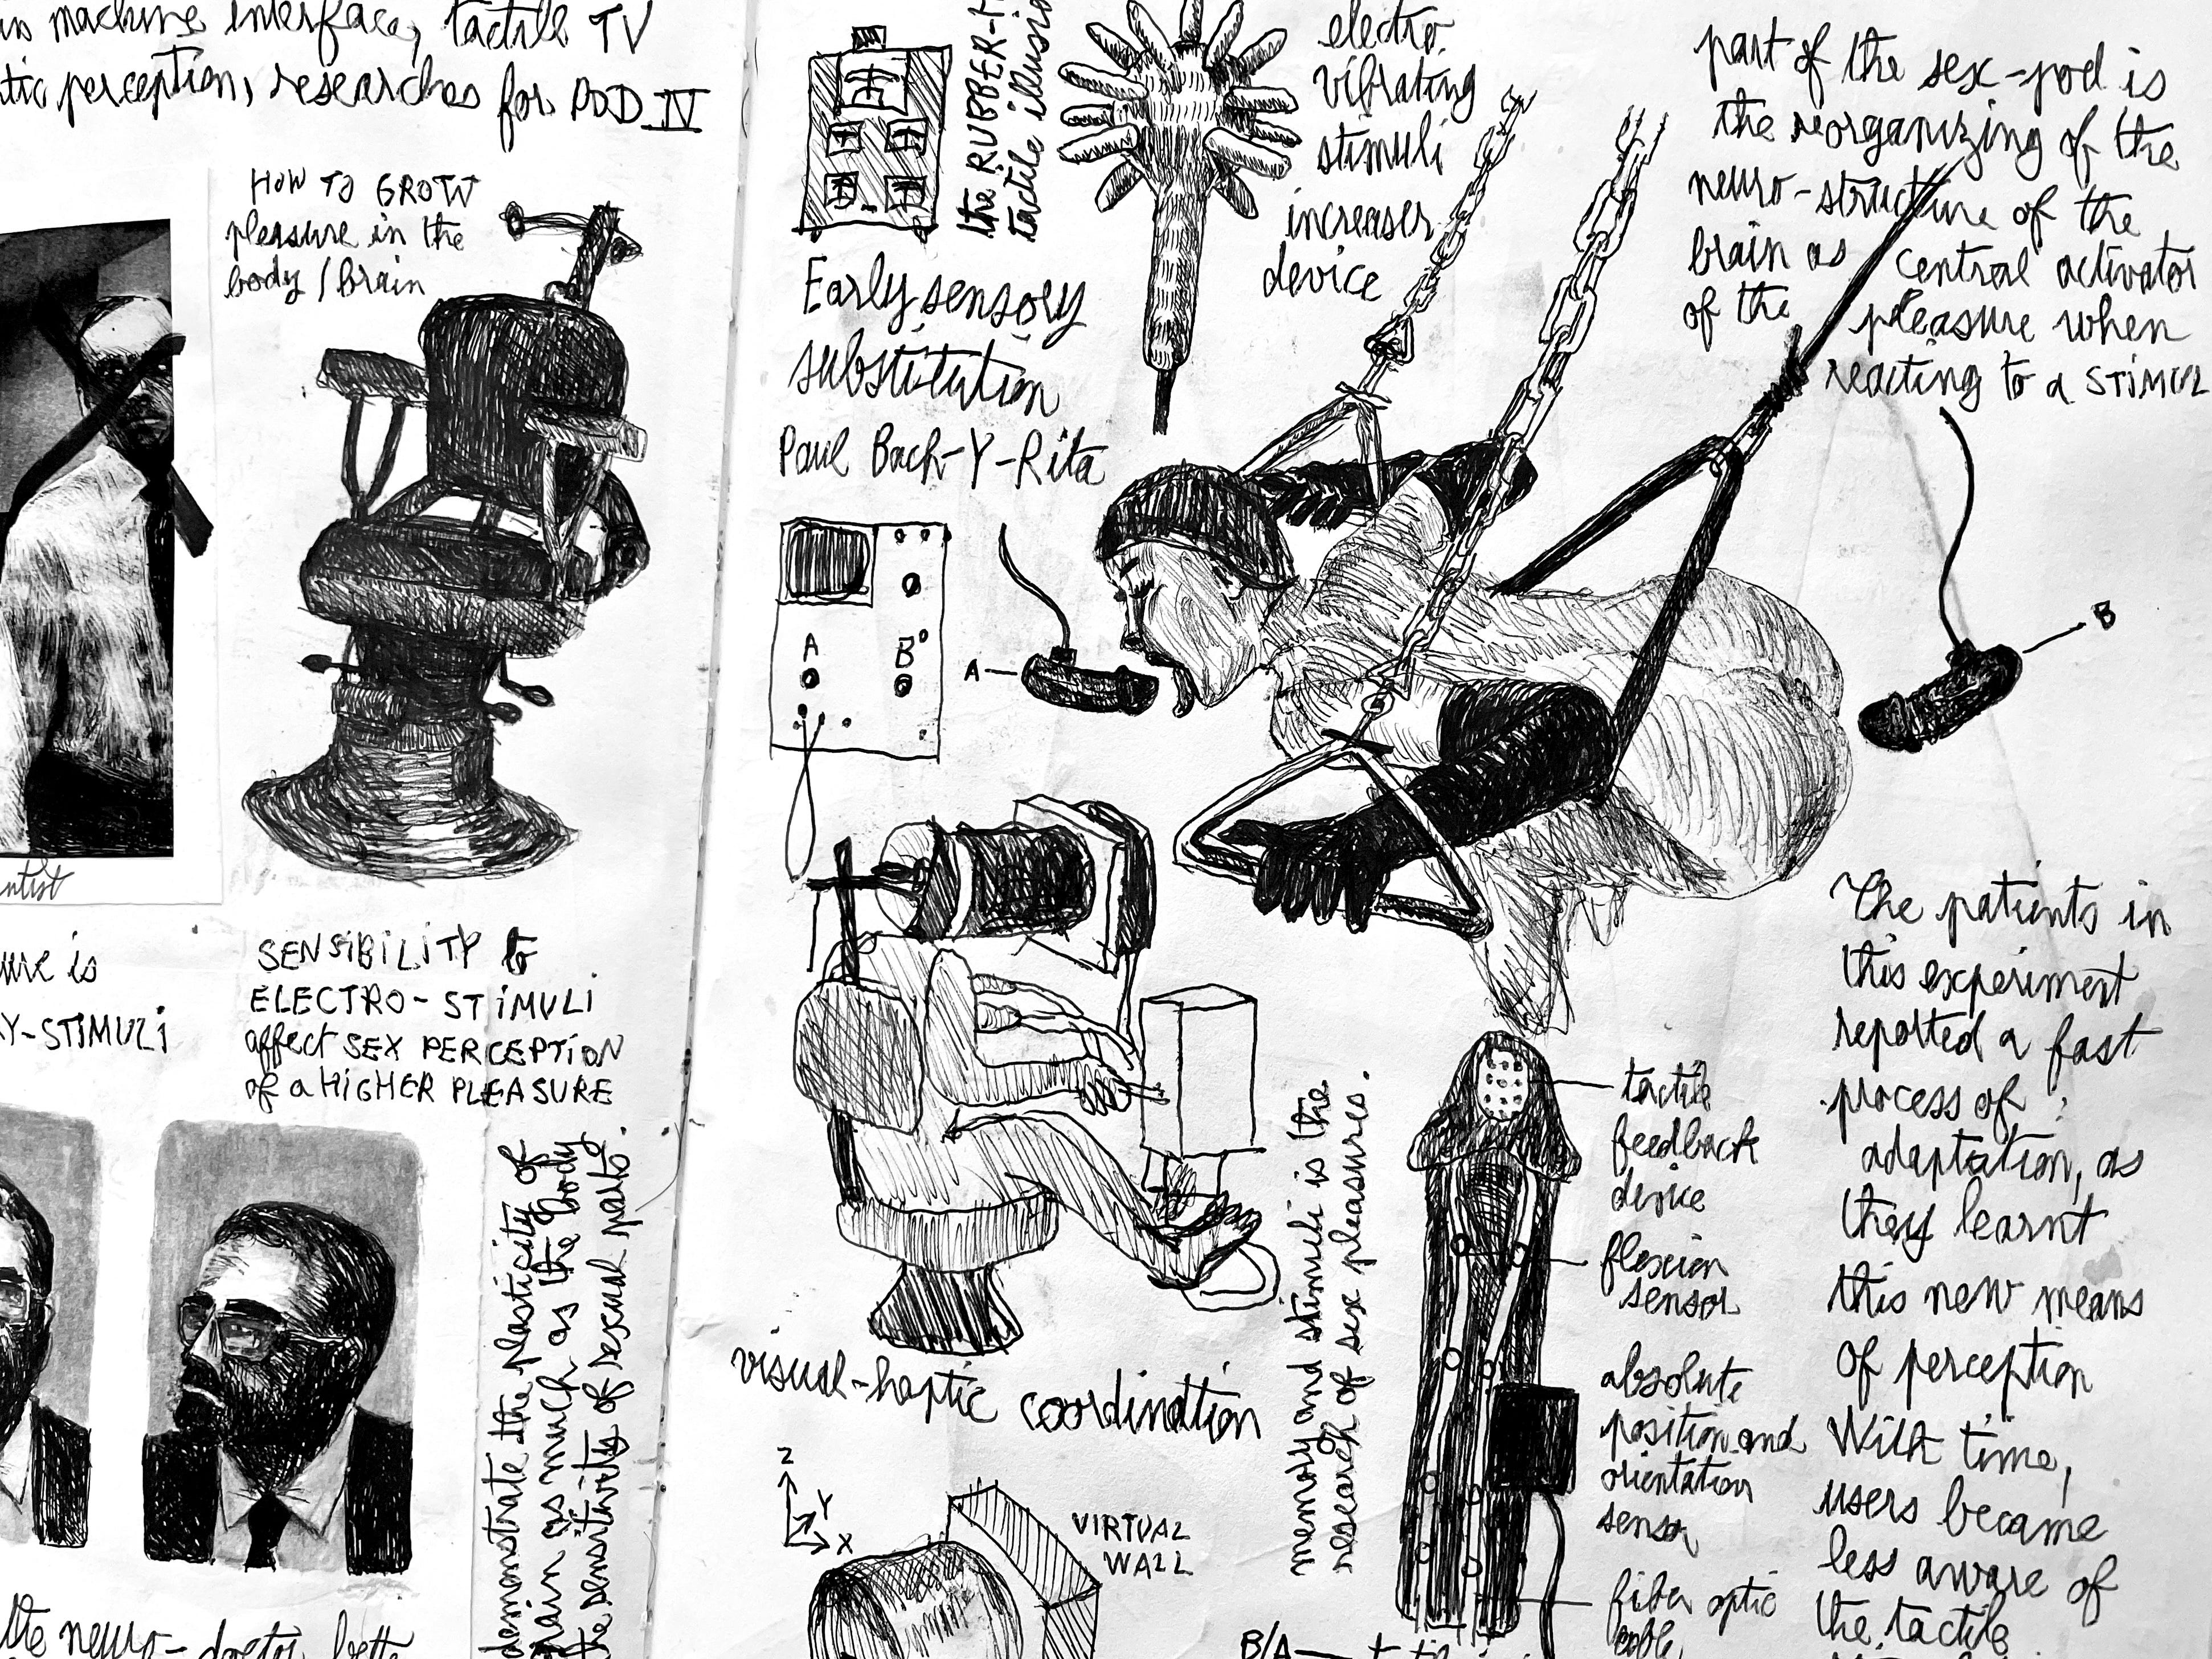 machine interface, tactile TV
tic perception, researches for POD IV
HOW TO GROW
pleasure in the
body / brain
ntist
ure is
Y-STIMULI
SENSIBILITY to
ELECTRO-STIMULI
affect SEX PERCEPTION
of a HIGHER PLEASURE
demonstrate the plasticity of
brain as much as the body
the sensitivity of sexual parts.
the neuro-doctor
the RUBBER-H
tactile illusio
electro
vibrating
stimuli
increaser
device
Early sensory
substitution
Paul Bach-Y-Rita
A
B
A
B
part of the sex-pod is
the reorganizing of the
neuro-structure of the
brain as central activator
of the pleasure when
reacting to a STIMUL
visual-haptic coordination
Z
Y
X
VIRTUAL
WALL
memory and stimuli is the
research of sex pleasures.
tactile
feedback
device
flexion
sensor
absolute
position and
orientation
sensor
fiber optic
cable
B/A
The patients in
this experiment
reported a fast
process of
adaptation, as
they learnt
this new means
of perception
With time,
users became
less aware of
the tactile